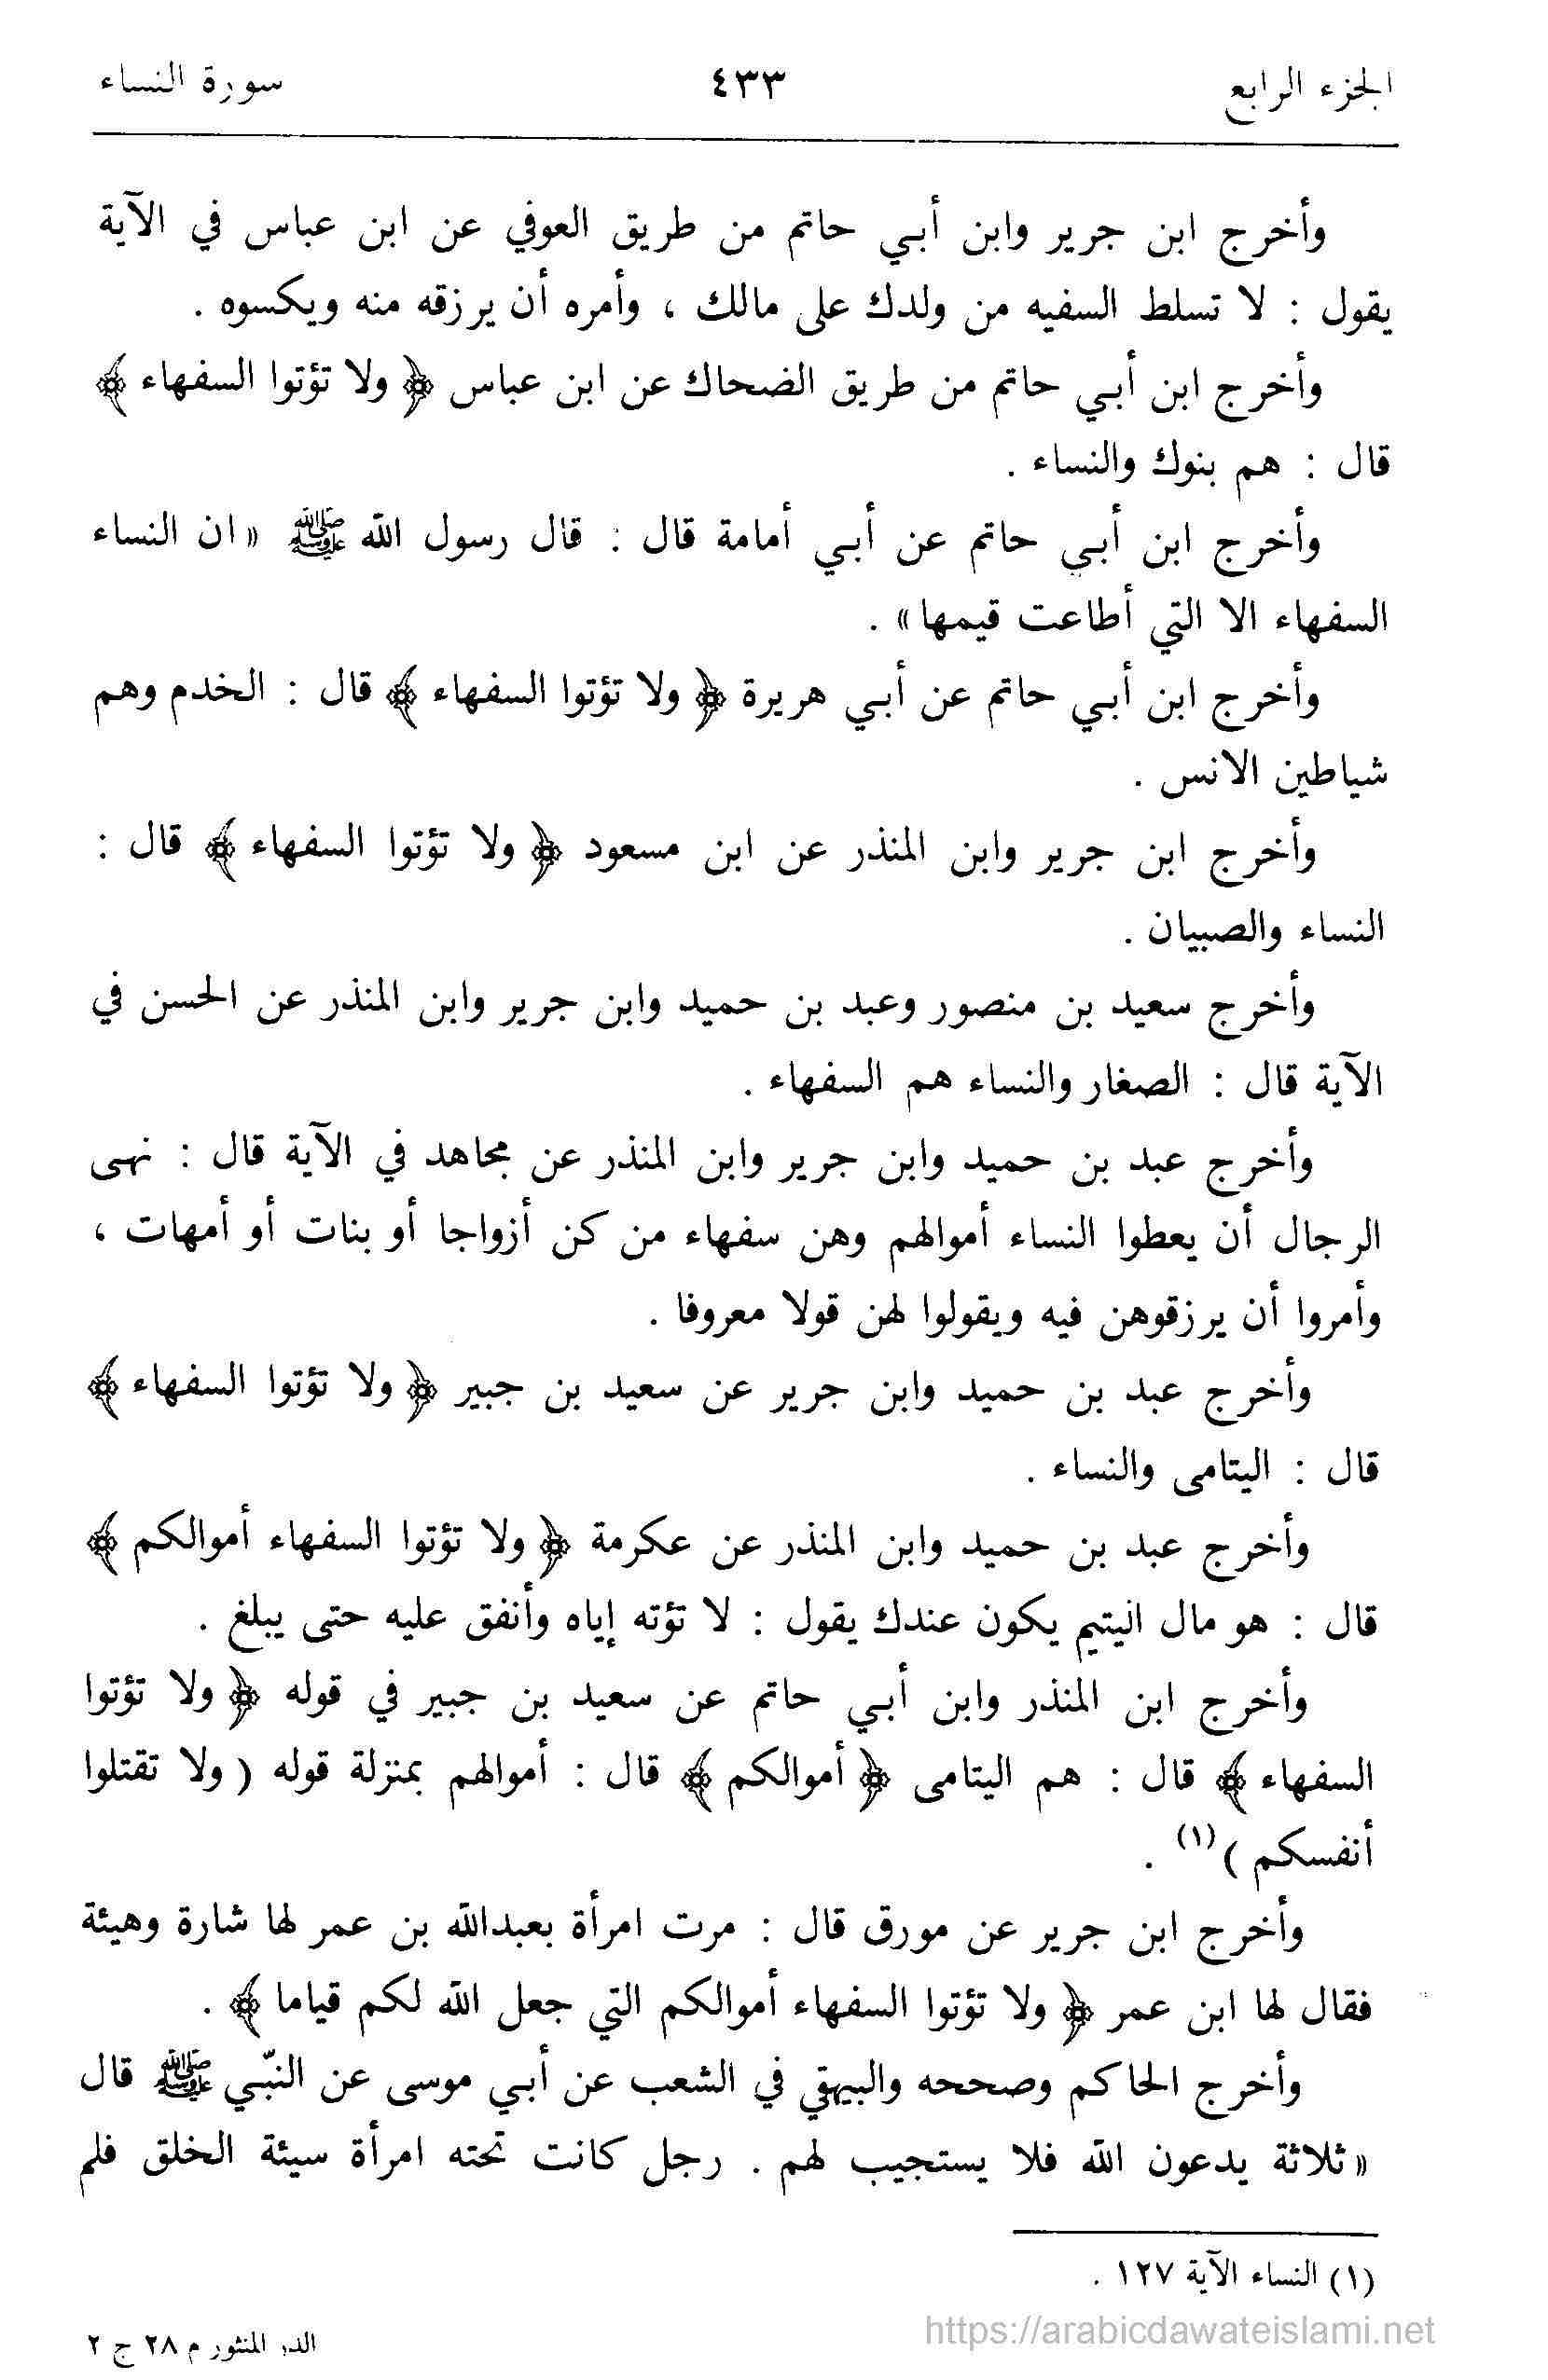 الجزء الرابع ٤٣٣ سورة النساء
وأخرج ابن جرير وابن أبي حاتم من طريق العوفي عن ابن عباس في الآية
يقول : لا تسلط السفيه من ولدك على مالك ، وأمره أن يرزقه منه ويكسوه .
وأخرج ابن أبي حاتم من طريق الضحاك عن ابن عباس ﴿ ولا تؤتوا السفهاء ﴾
قال : هم بنوك والنساء .
وأخرج ابن أبي حاتم عن أبي أمامة قال : قال رسول الله ﷺ « ان النساء
السفهاء الا التي أطاعت قيمها » .
وأخرج ابن أبي حاتم عن أبي هريرة ﴿ ولا تؤتوا السفهاء ﴾ قال : الخدم وهم
شياطين الانس .
وأخرج ابن جرير وابن المنذر عن ابن مسعود ﴿ ولا تؤتوا السفهاء ﴾ قال :
النساء والصبيان .
وأخرج سعيد بن منصور وعبد بن حميد وابن جرير وابن المنذر عن الحسن في
الآية قال : الصغار والنساء هم السفهاء .
وأخرج عبد بن حميد وابن جرير وابن المنذر عن مجاهد في الآية قال : نهى
الرجال أن يعطوا النساء أموالهم وهن سفهاء من كن أزواجا أو بنات أو أمهات ،
وأمروا أن يرزقوهن فيه ويقولوا لهن قولا معروفا .
وأخرج عبد بن حميد وابن جرير عن سعيد بن جبير ﴿ ولا تؤتوا السفهاء ﴾
قال : اليتامى والنساء .
وأخرج عبد بن حميد وابن المنذر عن عكرمة ﴿ ولا تؤتوا السفهاء أموالكم ﴾
قال : هو مال اليتيم يكون عندك يقول : لا تؤته إياه وأنفق عليه حتى يبلغ .
وأخرج ابن المنذر وابن أبي حاتم عن سعيد بن جبير في قوله ﴿ ولا تؤتوا
السفهاء ﴾ قال : هم اليتامى ﴿ أموالكم ﴾ قال : أموالهم بمنزلة قوله ( ولا تقتلوا
أنفسكم ) (١) .
وأخرج ابن جرير عن مورق قال : مرت امرأة بعبدالله بن عمر لها شارة وهيئة
فقال لها ابن عمر ﴿ ولا تؤتوا السفهاء أموالكم التي جعل الله لكم قياما ﴾ .
وأخرج الحاكم وصححه والبيهقي في الشعب عن أبي موسى عن النبّي ﷺ قال
« ثلاثة يدعون الله فلا يستجيب لهم . رجل كانت تحته امرأة سيئة الخلق فلم
(١) النساء الآية ١٢٧ .
الدر المنثور م ٢٨ ج ٢
https://arabicdawateislami.net